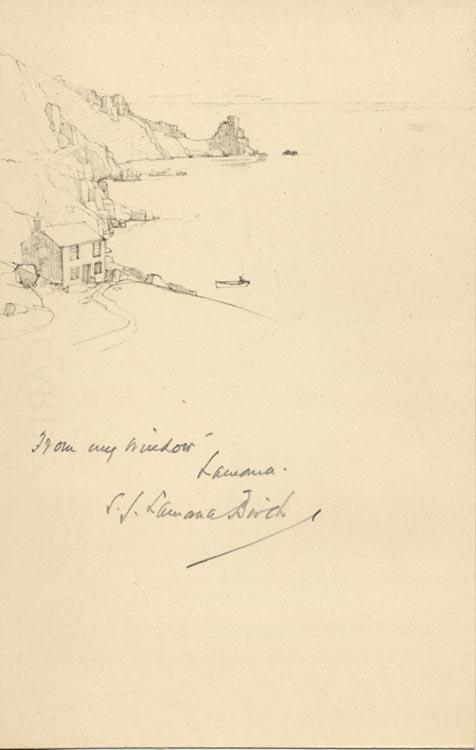 From my window
Lamorna.
S. J. Lamorna Birch